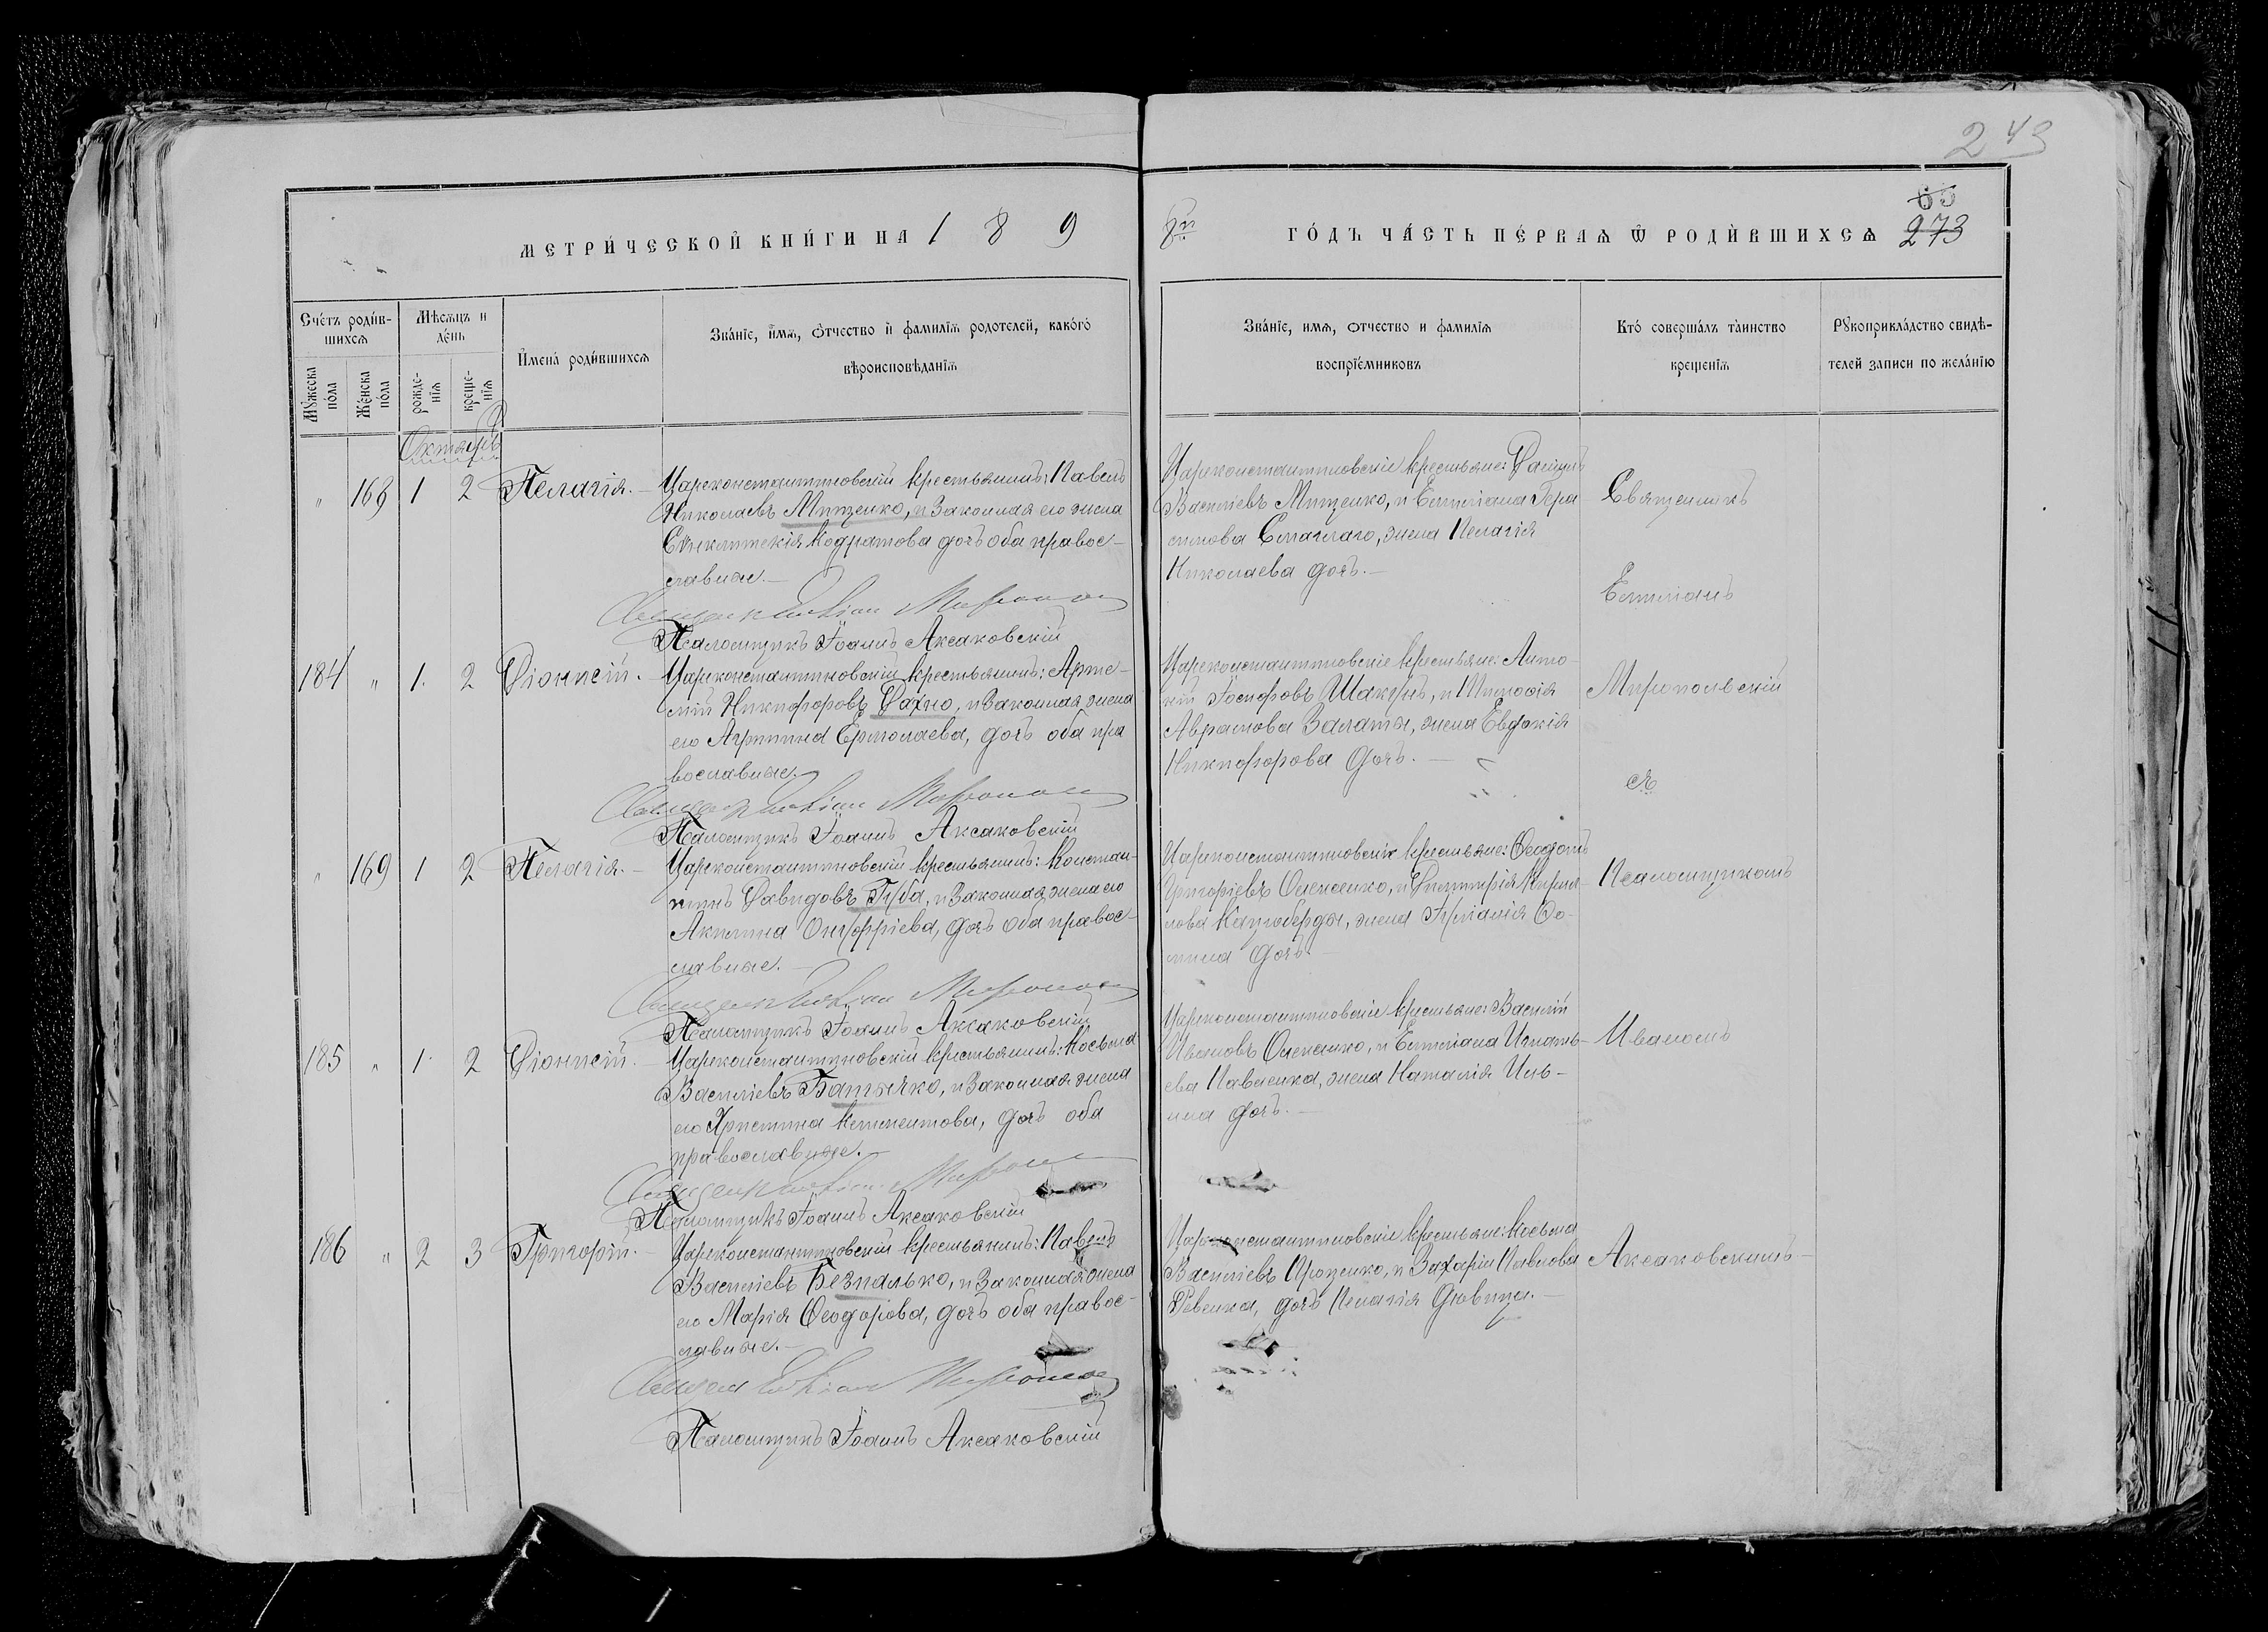 243
63
273
МЕТРИ́ЧЕСКОЙ КНИ́ГИ НА 1 8 9
8го ГО́ДЪ ЧА́СТЬ ПЕ́РВАѦ Ѿ РОДИ́ВШИХСѦ
Сче́тъ роди́в-
шихсѧ
Мѹ́жеска
по́ла
Же́нска
по́ла
Мѣ́сѧцъ и
де́нь
рожде-
нїѧ
креще-
нїѧ
И҆мена́ роди́вшихсѧ
Зва́нїе, и҆́мѧ, ѻ҆́тчество и҆ фамилїѧ родотелей, како́гѡ
вѣроисповѣданїѧ
Зва́нїе, имѧ, ѻтчество и фамилїѧ
воспрїе́мниковъ
Кто́ соверша́лъ та́инство
креще́нїѧ
Рꙋкоприкла́дство свидѣ́-
телей записи по жела́нїю
Октябрь
" 168 1 2 Пелагія.
Цареконстантиновскій крестьянинъ: Павелъ
Николаевъ Мищенко, и законная его жена
Синклитикія Кодратова дочь оба правос-
лавные.
Псаломщикъ Іоаннъ Аксаковскій
Цареконстантиновскіе крестьяне: Даніилъ
Васильевъ Мищенко, и Емиліана Гера
симова Смаглаго, жена Пелагія
Николаева дочь.
184 " 1. 2 Діонисій.
Цареконстантиновскій крестьянинъ: Арте-
мій Никифоровъ Дахно, и законная жена
его Агрипина Ермолаева, дочь оба пра
вославные.
Псаломщикъ Іоаннъ Аксаковскій
Цареконстантиновскіе крестьяне: Анто-
ній Іосифовъ, и
Аврамова, жена Евдокія
Никифорова дочь.
" 169 1 2 Пелагія.
Цареконстантиновскій крестьянинъ: Констан-
тинъ Давидовъ Губа, и законная жена его
Акилина Онуфріева, дочь оба правос-
лавные.
Псаломщикъ Іоаннъ Аксаковскій
Цареконстантиновскіе крестьяне: Ѳеодотъ
Григоріевъ, и Димитрія Кирил-
лова, жена Іуліанія Ѳо-
мина дочь.
185 " 1. 2 Діонисій.
Цареконстантиновскій крестьянинъ: Косьма
Васильевъ, и законная жена
его Христина Климентова, дочь оба
православные.
Псаломщикъ Іоаннъ Аксаковскій
Цареконстантиновскіе крестьяне: Василій
Ивановъ, и Емиліана Игнать-
ева Павленка, жена Наталія Иль-
ина дочь.
186 " 2 3 Григорій.
Цареконстантиновскій крестьянинъ: Павелъ
Васильевъ Безпалько, и законная жена
его Марія Ѳеодорова, дочь оба правос-
лавные.
Псаломщикъ Іоаннъ Аксаковскій
Цареконстантиновскіе крестьяне: Косьма
Васильевъ Проценко, и Захарія Павлова
Ревенка, дочь Пелагія дѣвица.
Священникъ
Емиліанъ
Миропольскій
съ
Псаломщикомъ
Иваномъ
Аксаковскимъ